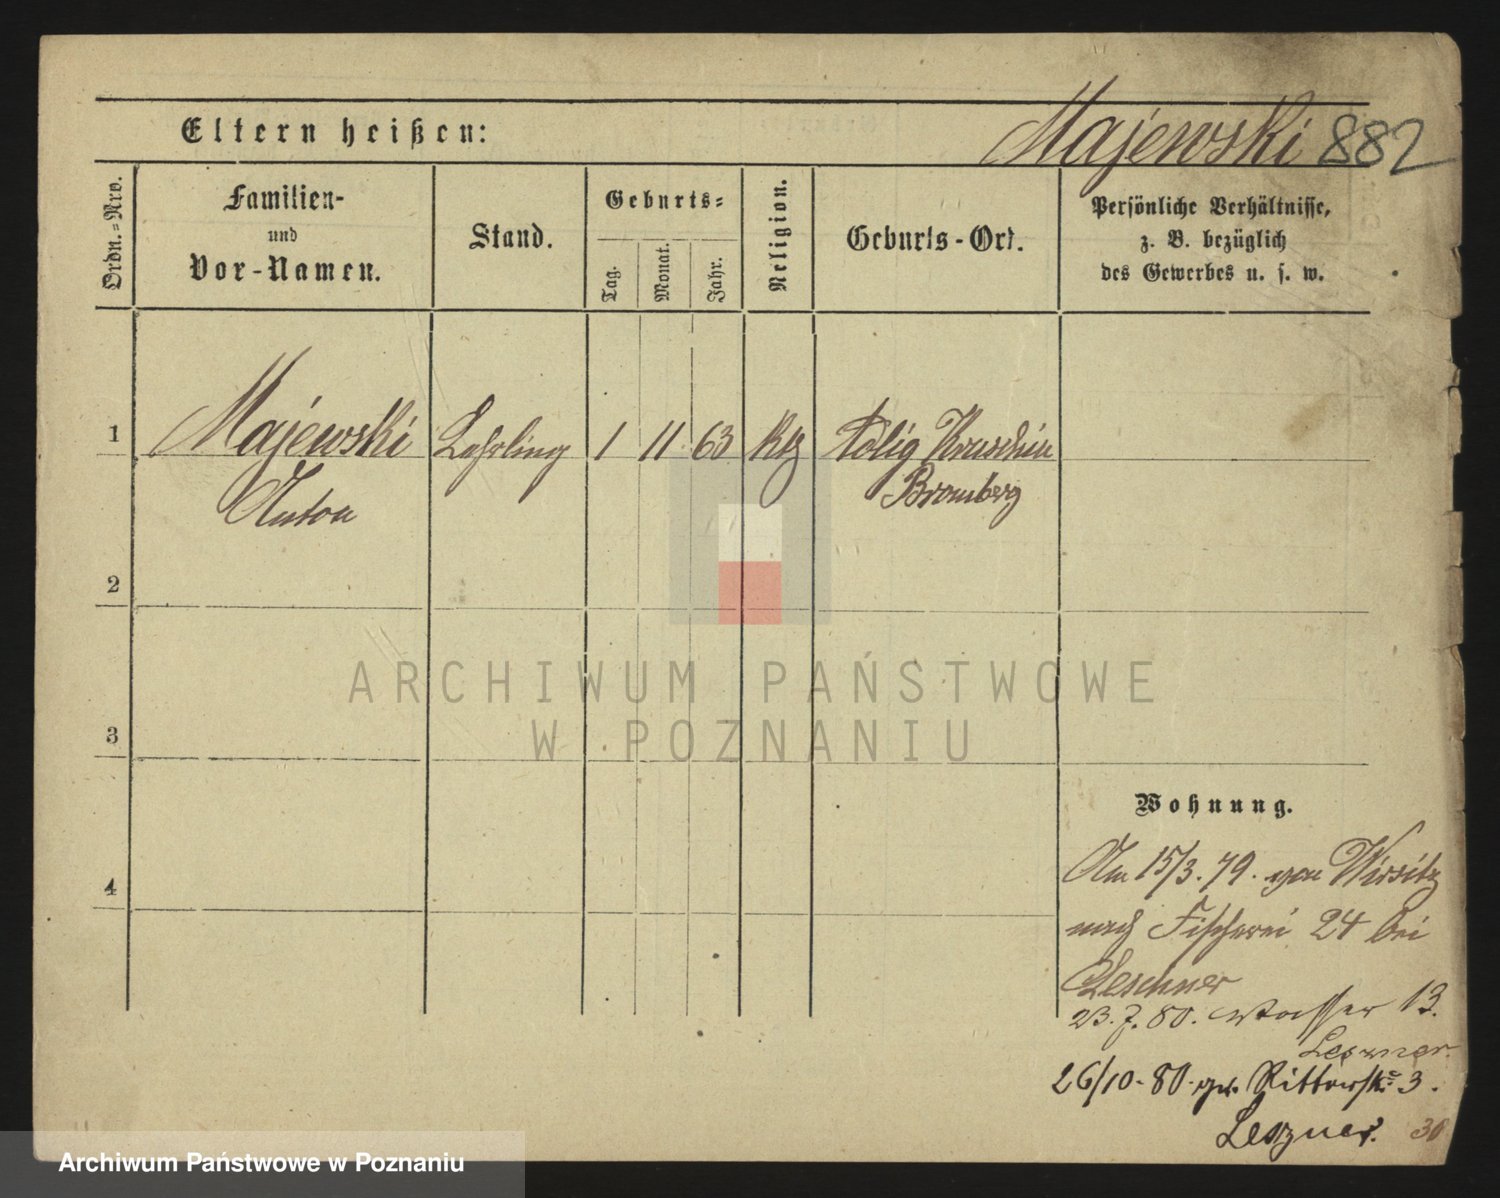 Eltern heißen:
Majewski 882
Ordn.=Nro.
Familien-
und
Vor-Namen.
Stand.
Geburts=
Tag.
Monat.
Jahr.
Religion.
Geburts-Ort.
Persönliche Verhältnisse,
z. B. bezüglich
des Gewerbes u. s. w.
1
Majewski
Lehrling
1
11
63
Kth
Polig Kruschin
Anton
Bromberg
2
3
4
ARCHIWUM PAŃSTWOWE
W POZNANIU
Wohnung.
Am 15/3. 79. von Wirsitz
nach Fischerei 24 bei
Leschner
23. 7. 80. Wasser 13.
Leszner.
26/10. 80. Ritterstr. 3.
Leszner.
Archiwum Państwowe w Poznaniu